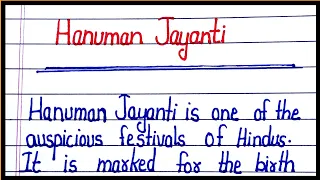 Hanuman Jayanti
Hanuman Jayanti is one of the
auspicious festivals of Hindus.
It is marked for the birth